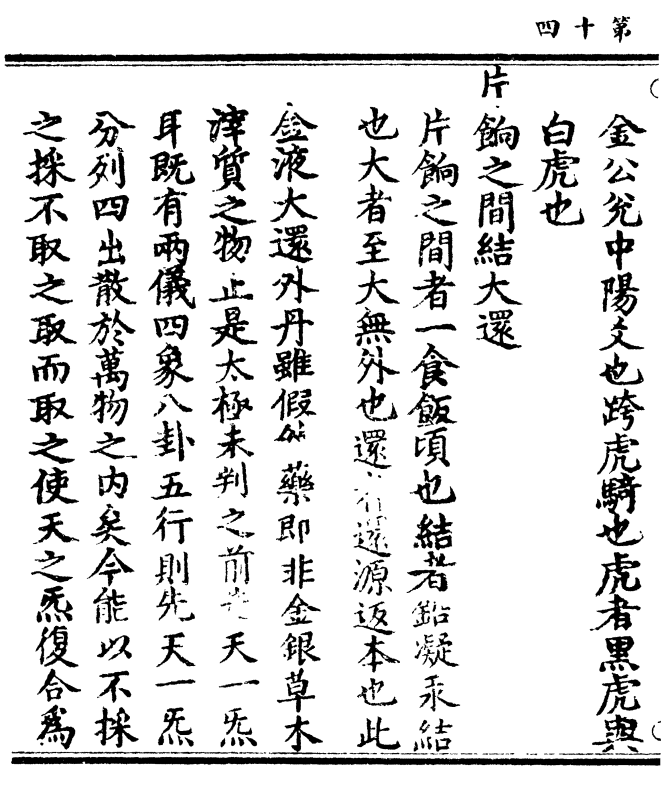 第十四
金公兊中陽文也跨虎騎也虎者黑虎與
白虎也
片餉之間結大還
片餉之間者一食飯頃也結者鉛凝汞結
也大者至大無外也還者還源返本也此
金液大還外丹雖假外藥即非金銀草木
津質之物止是太極未判之前先天一炁
耳既有兩儀四象八卦五行則先天一炁
分列四出散於萬物之内矣今能以不採
之採不取之取而取之使天之炁復合爲